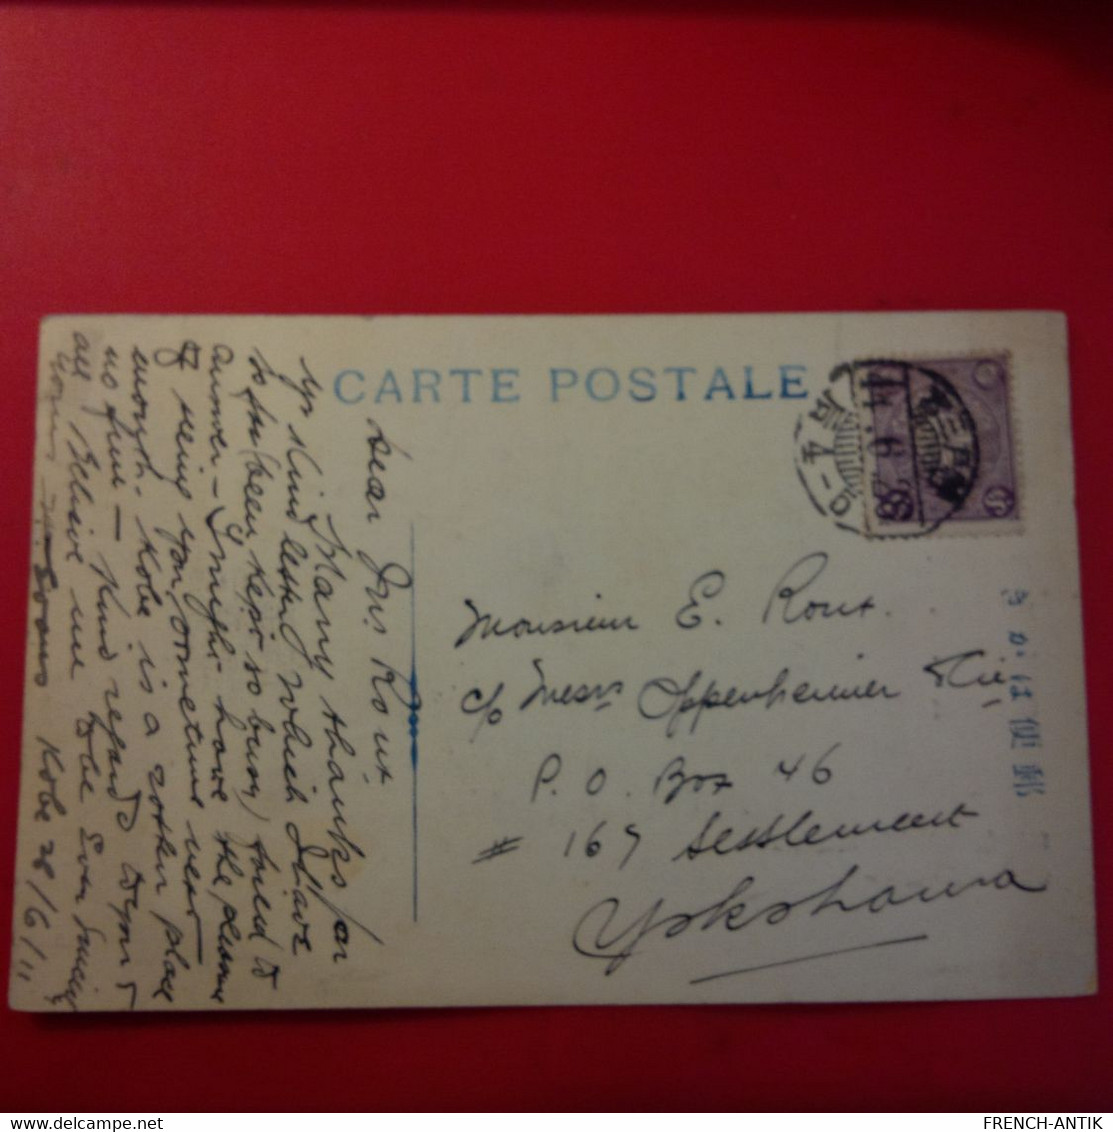 CARTE POSTALE
Dear Mrs Roux.
Many thanks for
yr kind letter which I have
so far (been kept so busy) failed to
answer - I might have the pleasure
of seeing you sometime next
enough. Kobe is a rotten place
no fun - Kind regards to you &
all Believe me to be Ever Sincerely
yours
Kobe 28/6/11
Monsieur E. Roux.
c/o Messrs Oppenheimer & Cie
P. O. Box 46
# 167 Settlement
Yokohama
きかは便郵
FRENCH-ANTIK